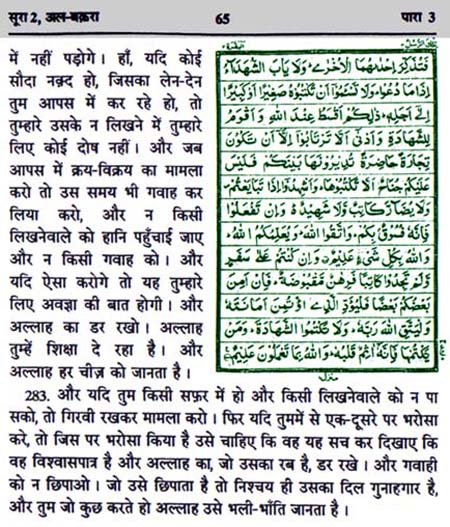 सूरा 2, अल-बक़रा 65 पारा 3
में नहीं पड़ोगे। हाँ, यदि कोई
सौदा नक़द हो, जिसका लेन-देन
तुम आपस में कर रहे हो, तो
तुम्हारे उसके न लिखने में तुम्हारे
लिए कोई दोष नहीं। और जब
आपस में क्रय-विक्रय का मामला
करो तो उस समय भी गवाह कर
लिया करो, और न किसी
लिखनेवाले को हानि पहुँचाई जाए
और न किसी गवाह को। और
यदि ऐसा करोगे तो यह तुम्हारे
लिए अवज्ञा की बात होगी। और
अल्लाह का डर रखो। अल्लाह
तुम्हें शिक्षा दे रहा है। और
अल्लाह हर चीज़ को जानता है।
فَتُذَكِّرَ اِحْدٰىهُمَا الْاُخْرٰى ۚ وَلَا يَاْبَ الشُّهَدَآءُ
اِذَا مَا دُعُوْا ۚ وَلَا تَسْـَٔمُوْٓا اَنْ تَكْتُبُوْهُ صَغِيْرًا اَوْ كَبِيْرًا
اِلٰٓى اَجَلِهٖ ۚ ذٰلِكُمْ اَقْسَطُ عِنْدَ اللّٰهِ وَاَقْوَمُ
لِلشَّهَادَةِ وَاَدْنٰٓى اَلَّا تَرْتَابُوْٓا اِلَّآ اَنْ تَكُوْنَ
تِجَارَةً حَاضِرَةً تُدِيْرُوْنَهَا بَيْنَكُمْ فَلَيْسَ
عَلَيْكُمْ جُنَاحٌ اَلَّا تَكْتُبُوْهَا ۚ وَاَشْهِدُوْٓا اِذَا تَبَايَعْتُمْ
وَلَا يُضَآرَّ كَاتِبٌ وَّلَا شَهِيْدٌ ۚ وَاِنْ تَفْعَلُوْا
فَاِنَّهٗ فُسُوْقٌۢ بِكُمْ ۚ وَاتَّقُوا اللّٰهَ ۚ وَيُعَلِّمُكُمُ اللّٰهُ
وَاللّٰهُ بِكُلِّ شَىْءٍ عَلِيْمٌ ۝ وَاِنْ كُنْتُمْ عَلٰى سَفَرٍ
وَّلَمْ تَجِدُوْا كَاتِبًا فَرِهٰنٌ مَّقْبُوْضَةٌ ۚ فَاِنْ اَمِنَ
بَعْضُكُمْ بَعْضًا فَلْيُؤَدِّ الَّذِى اؤْتُمِنَ اَمَانَتَهٗ
وَلْيَتَّقِ اللّٰهَ رَبَّهٗ ۚ وَلَا تَكْتُمُوا الشَّهَادَةَ ۚ وَمَنْ
يَّكْتُمْهَا فَاِنَّهٗٓ اٰثِمٌ قَلْبُهٗ ۚ وَاللّٰهُ بِمَا تَعْمَلُوْنَ عَلِيْمٌ ۝
283. और यदि तुम किसी सफ़र में हो और किसी लिखनेवाले को न पा
सको, तो गिरवी रखकर मामला करो। फिर यदि तुममें से एक-दूसरे पर भरोसा
करे, तो जिस पर भरोसा किया है उसे चाहिए कि वह यह सच कर दिखाए कि
वह विश्वासपात्र है और अल्लाह का, जो उसका रब है, डर रखे। और गवाही
को न छिपाओ। जो उसे छिपाता है तो निश्चय ही उसका दिल गुनाहगार है,
और तुम जो कुछ करते हो अल्लाह उसे भली-भाँति जानता है।